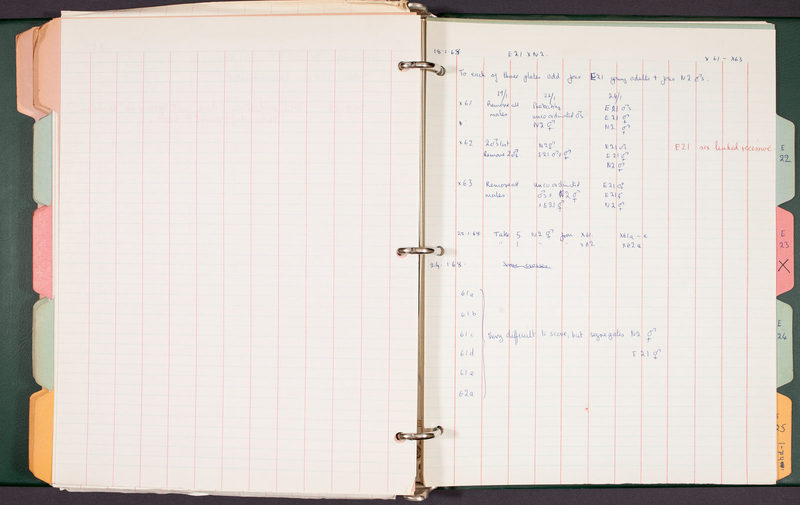 18.1.68 E21 x N2.
x61 - x63
To each of three plates add four E21 young adults + four N2 ♂s.
19/1 22/1 24/1
x61 Remove all Probably E21 ♂s
males uncoordinated ♂s E21 ⚥
N2 ⚥ N2 ⚥
x62 2♂s left N2⚥ E21 ♂
Remove 2♂s E21 ♂s+⚥ E21 ⚥
N2 ⚥
E21 sex linked recessive
x63 Remove all uncoordinated E21 ♂
males ♂s + N2 ⚥ E21 ⚥
+ E21 ⚥ N2 ⚥
22.1.68 Take 5 N2 ⚥ from x61 x61a - e
" 1 " x62 x62a
24.1.68.
61a
61b
61c Very difficult to score, but segregates N2 ⚥
61d E21 ⚥
61e
62a
E
22
E
23
X
E
24
25
unhd-1